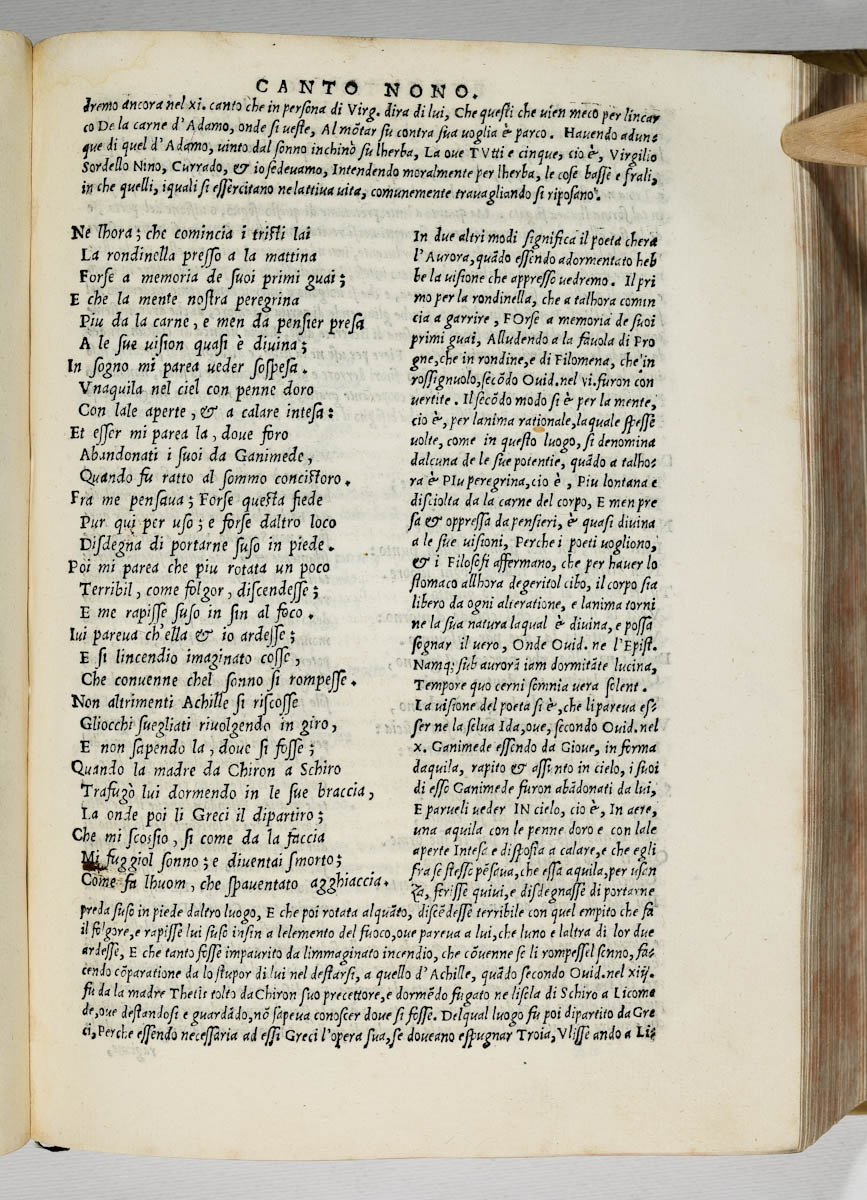 CANTO NONO.
dremo ancora nel xi. canto che in persona di Virg. dira di lui, Che questi che uien meco per lincar
co De la carne d'Adamo, onde si ueste, Al mōtar su contra sua uoglia è parco. Hauendo adun=
que di quel d'Adamo, uinto dal sonno inchinò su lherba, La oue TVtti e cinque, cio è, Virgilio
Sordello Nino, Currado, & io sedeuamo, Intendendo moralmente per lherba, le cose basse e frali,
in che quelli, iquali si essercitano ne lattiua uita, comunemente trauagliando si riposano.
Ne lhora; che comincia i tristi lai
La rondinella presso a la mattina
Forse a memoria de suoi primi guai;
E che la mente nostra peregrina
Piu da la carne, e men da pensier presa
A le sue uision quasi è diuina;
In sogno mi parea ueder sospesa.
Vnaquila nel ciel con penne doro
Con lale aperte, & a calare intesa:
Et esser mi parea la, doue foro
Abandonati i suoi da Ganimede,
Quando fu ratto al sommo concistoro.
Fra me pensaua; Forse questa fiede
Pur qui per uso; e forse daltro loco
Disdegna di portarne suso in piede.
Poi mi parea che piu rotata un poco
Terribil, come folgor, discendesse;
E me rapisse suso in fin al foco.
Iui pareua ch'ella & io ardesse;
E si lincendio imaginato cosse,
Che conuenne chel sonno si rompesse.
Non altrimenti Achille si riscosse
Gliocchi suegliati riuolgendo in giro,
E non sapendo la, doue si fosse;
Quando la madre da Chiron a Schiro
Trafugò lui dormendo in le sue braccia,
La onde poi li Greci il dipartiro;
Che mi scossio, si come da la faccia
Mi fuggiol sonno; e diuentai smorto;
Come fa lhuom, che spauentato agghiaccia.
In due altri modi significa il poeta chera
l'Aurora, quādo essendo adormentato heb
be la uisione che appresso uedremo. Il pri
mo per la rondinella, che a talhora comin
cia a garrire, FOrse a memoria de suoi
primi guai, Alludendo a la fauola di Pro
gne, che in rondine, e di Filomena, che in
rossignuolo, secōdo Ouid. nel vi. furon con
uertite. Il secōdo modo si è per la mente,
cio è, per lanima rationale, laquale spesse
uolte, come in questo luogo, si denomina
dalcuna de le sue potentie, quādo a talho=
ra è PIu peregrina, cio è, Piu lontana e
disciolta da la carne del corpo, E men pre
sa & oppressa da pensieri, è quasi diuina
a le sue uisioni, Perche i poeti uogliono,
& i Filosofi affermano, che per hauer lo
stomaco allhora degeritol cibo, il corpo sia
libero da ogni alteratione, e lanima torni
ne la sua natura laqual è diuina, e possa
sognar il uero, Onde Ouid. ne l'Epist.
Namq; sub aurorā iam dormitāte lucina,
Tempore quo cerni somnia uera solent.
La uisione del poeta si è, che li pareua es=
ser ne la selua Ida, oue, secondo Ouid. nel
x. Ganimede essendo da Gioue, in forma
daquila, rapito & assunto in cielo, i suoi
di esso Ganimede furon abādonati da lui,
E parueli ueder IN cielo, cio è, In aere,
una aquila con le penne doro e con lale
aperte Intesa e disposta a calare, e che egli
fra se stesso pēsaua, che essa aquila, per usan
za, ferisse quiui, e disdegnasse di portarne
preda suso in piede daltro luogo, E che poi rotata alquāto, discēdesse terribile con quel empito che fa
il folgore, e rapisse lui suso insin a lelemento del fuoco, oue pareua a lui, che luno e laltra di lor due
ardesse, E che tanto fosse impaurito da limmaginato incendio, che cōuenne se li rompessel sonno, fa=
cendo cōparatione da lo stupor di lui nel destarsi, a quello d'Achille, quādo secondo Ouid. nel xiij.
fu da la madre Thetis tolto da Chiron suo precettore, e dormēdo fugato ne lisela di Schiro a Licome
de, oue destandosi e guardādo, nō sapeua conoscer doue si fosse. Delqual luogo fu poi dipartito da Gre
ci, Perche essendo necessaria ad essi Greci l'opera sua, se doueano espugnar Troia, Vlisse ando a Li=